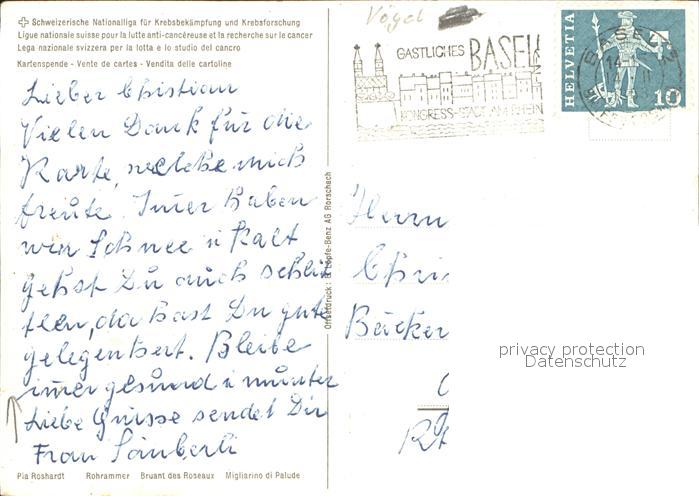 Schweizerische Nationalliga für Krebsbekämpfung und Krebsforschung
Ligue nationale suisse pour la lutte anti-cancéreuse et la recherche sur le cancer
Lega nazionale svizzera per la lotta e lo studio del cancro
Kartenspende - Vente de cartes - Vendita delle cartoline
Lieber Christian
Vielen Dank für die
Karte, welche mich
freute. Imer haben
wir Schnee u kalt
gehst Du auch schlit
tlen, da hast Du gute
gelegenheit. Bleibe
imer gesund u munter
Liebe Grüsse sendet Dir
Frau
Pia Roshardt Rohrammer Bruant des Roseaux Migliarino di Palude
Offsetdruck: E. Löpfe-Benz AG Rorschach
Vögel
GASTLICHES BASEL
KONGRESS-STADT AM RHEIN
HELVETIA
10
BASEL
Herrn
Chri
Bäcker
privacy protection
Datenschutz